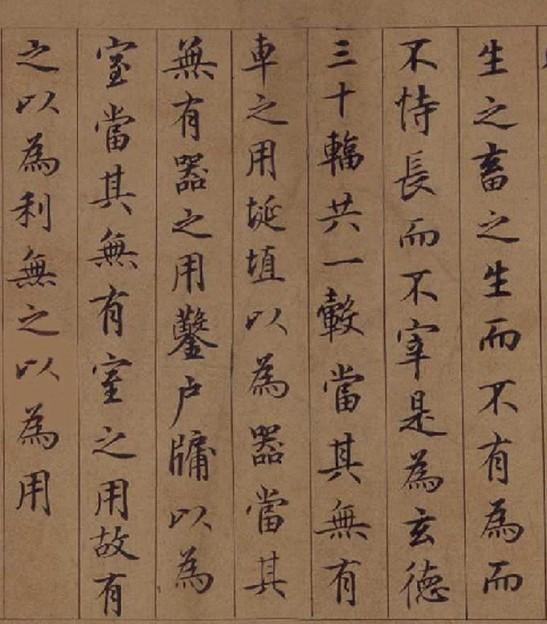 生之畜之生而不有為而
不恃長而不宰是為玄德
三十輻共一轂當其無有
車之用埏埴以為器當其
無有器之用鑿戶牖以為
室當其無有室之用故有
之以為利無之以為用